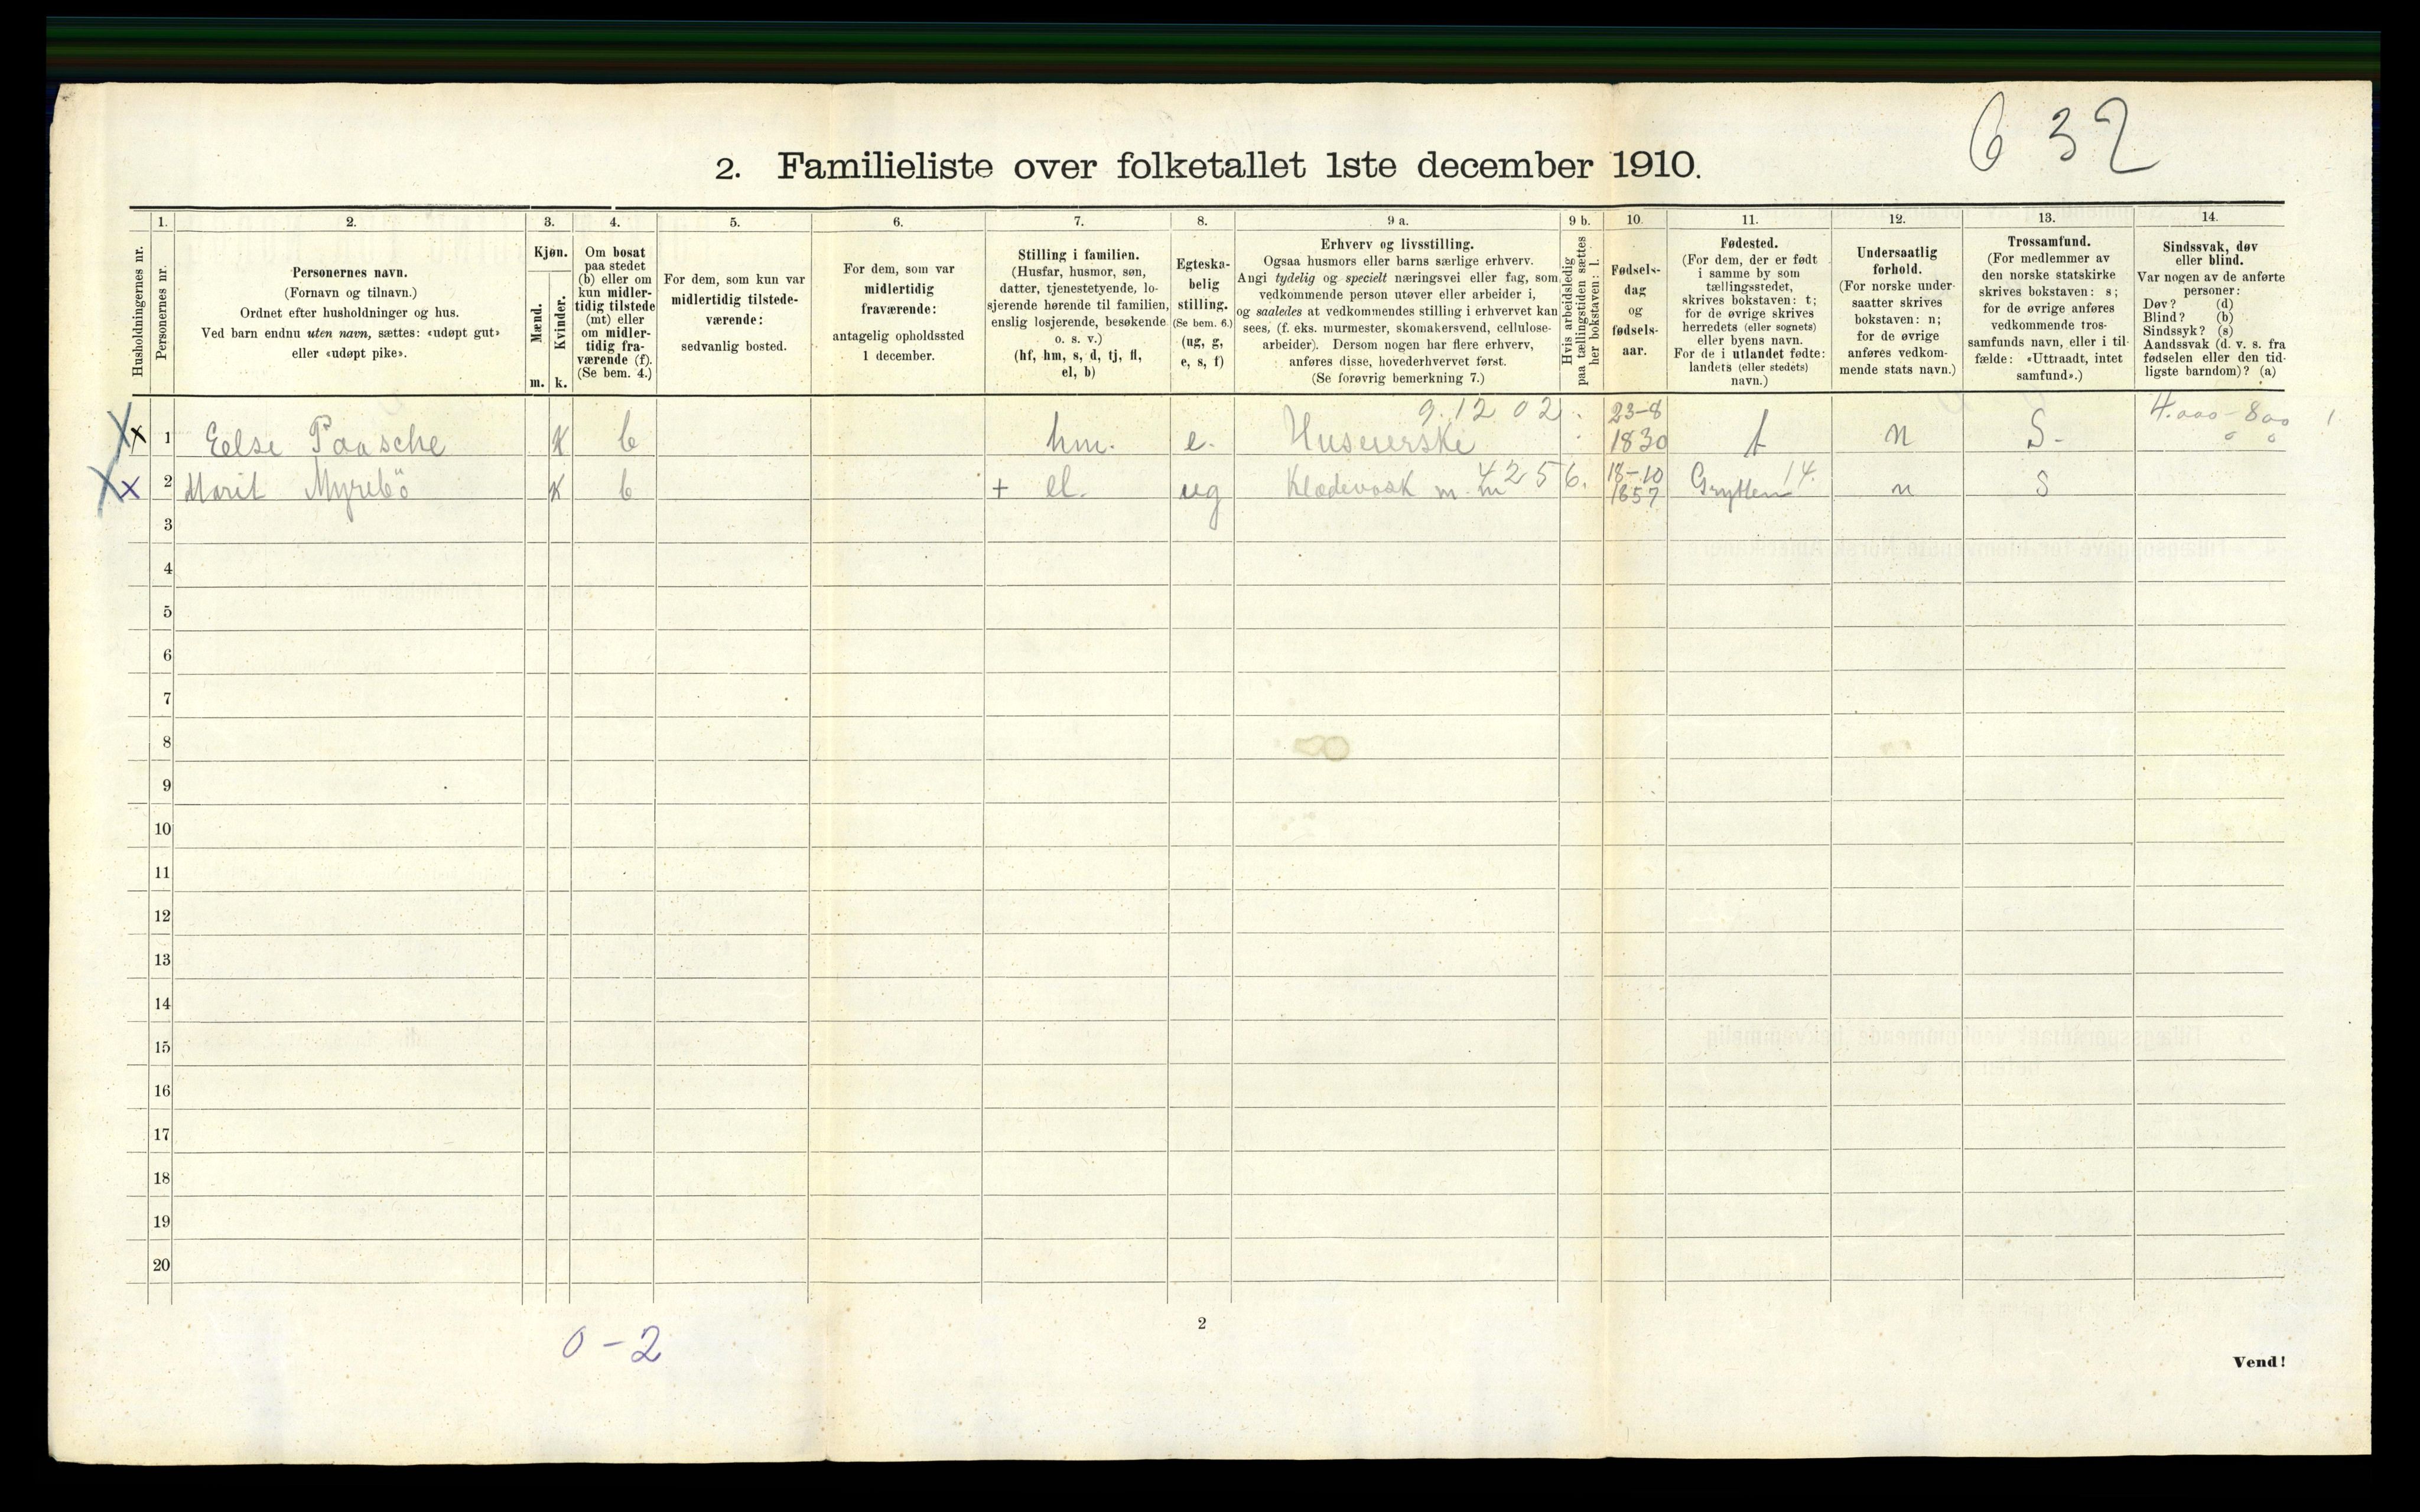 632
2. Familieliste over folketallet 1ste december 1910.
1. 2. 3. 4. 5. 6. 7. 8. 9 a. 9 b. 10. 11. 12. 13. 14.
Husholdningernes nr.
Personernes nr.
Personernes navn.
(Fornavn og tilnavn.)
Ordnet efter husholdninger og hus.
Ved barn endnu uten navn, sættes: «udøpt gut»
eller «udøpt pike».
Kjøn.
Mænd.
Kvinder.
m. k.
Om bosat
paa stedet
(b) eller om
kun midler-
tidig tilstede
(mt) eller
om midler-
tidig fra-
værende (f).
(Se bem. 4.)
For dem, som kun var
midlertidig tilstede-
værende:
sedvanlig bosted.
For dem, som var
midlertidig
fraværende:
antagelig opholdssted
1 december.
Stilling i familien.
(Husfar, husmor, søn,
datter, tjenestetyende, lo-
sjerende hørende til familien,
enslig losjerende, besøkende
o. s. v.)
(hf, hm, s, d, tj, fl,
el, b)
Egteska-
belig
stilling.
(Se bem. 6.)
(ug, g,
e, s, f)
Erhverv og livsstilling.
Ogsaa husmors eller barns særlige erhverv.
Angi tydelig og specielt næringsvei eller fag, som
vedkommende person utøver eller arbeider i,
og saaledes at vedkommendes stilling i erhvervet kan
sees, (f. eks. murmester, skomakersvend, cellulose-
arbeider). Dersom nogen har flere erhverv,
anføres disse, hovederhvervet først.
(Se forøvrig bemerkning 7.)
Hvis arbeidsledig
paa tællingstiden sættes
her bokstaven: l.
Fødsels-
dag
og
fødsels-
aar.
Fødested.
(For dem, der er født
i samme by som
tællingsstedet,
skrives bokstaven: t;
for de øvrige skrives
herredets (eller sognets)
eller byens navn.
For de i utlandet fødte:
landets (eller stedets)
navn.)
Undersaatlig
forhold.
(For norske under-
saatter skrives
bokstaven: n;
for de øvrige
anføres vedkom-
mende stats navn.)
Trossamfund.
(For medlemmer av
den norske statskirke
skrives bokstaven: s;
for de øvrige anføres
vedkommende tros-
samfunds navn, eller i til-
fælde: «Uttraadt, intet
samfund».)
Sindssvak, døv
eller blind.
Var nogen av de anførte
personer:
Døv? (d)
Blind? (b)
Sindssyk? (s)
Aandssvak (d. v. s. fra
fødselen eller den tid-
ligste barndom)? (a)
9.12 02 23-8 4.000-800
X x 1 Eelse Paasche K b hm. e. Huseierske 1830 t n S-
X x 2 Marit Myrebö K b + el. ug Klædevask m. m 4256. 18-10 1857 Grytten 14. n s
3
4
5
6
7
8
9
10
11
12
13
14
15
16
17
18
19
20
2
0-2
Vend!